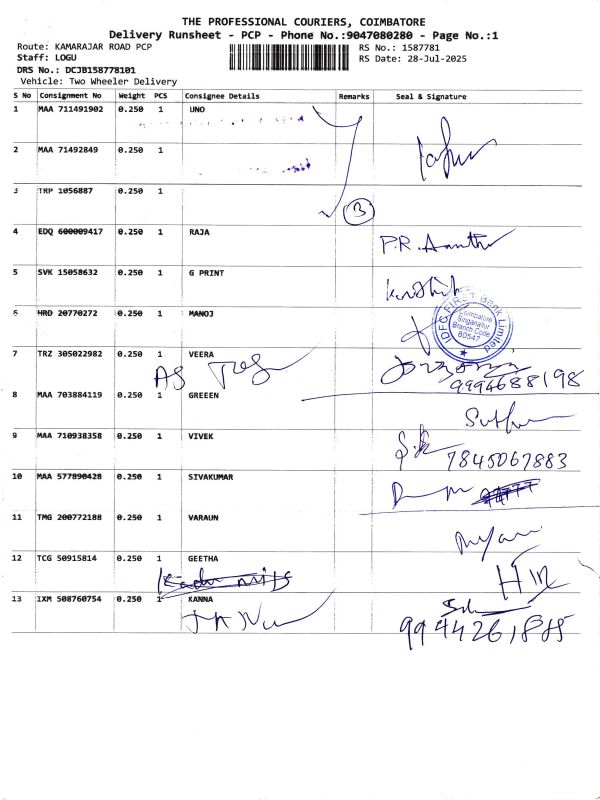 THE PROFESSIONAL COURIERS, COIMBATORE
Delivery Runsheet - PCP - Phone No.:9047080280 - Page No.:1
Route: KAMARAJAR ROAD PCP
RS No.: 1587781
Staff: LOGU
RS Date: 28-Jul-2025
DRS No.: DCJB158778101
Vehicle: Two Wheeler Delivery
S No Consignment No Weight PCS Consignee Details Remarks Seal & Signature
1 MAA 711491902 0.250 1 UNO
2 MAA 71492849 0.250 1
3 TRP 1056887 0.250 1
3
4 EDQ 600009417 0.250 1 RAJA
P.R.
5 SVK 15058632 0.250 1 G PRINT
6 HRD 20770272 0.250 1 MANOJ
IDFC FIRST Bank Limited
Coimbatore
Singanallur
Branch Code
80547
7 TRZ 305022982 0.250 1 VEERA
9994688198
8 MAA 703884119 0.250 1 GREEEN
9 MAA 710938358 0.250 1 VIVEK
7845067883
10 MAA 577890428 0.250 1 SIVAKUMAR
11 TMG 200772188 0.250 1 VARAUN
12 TCG 50915814 0.250 1 GEETHA
13 IXM 508760754 0.250 1 KANNA